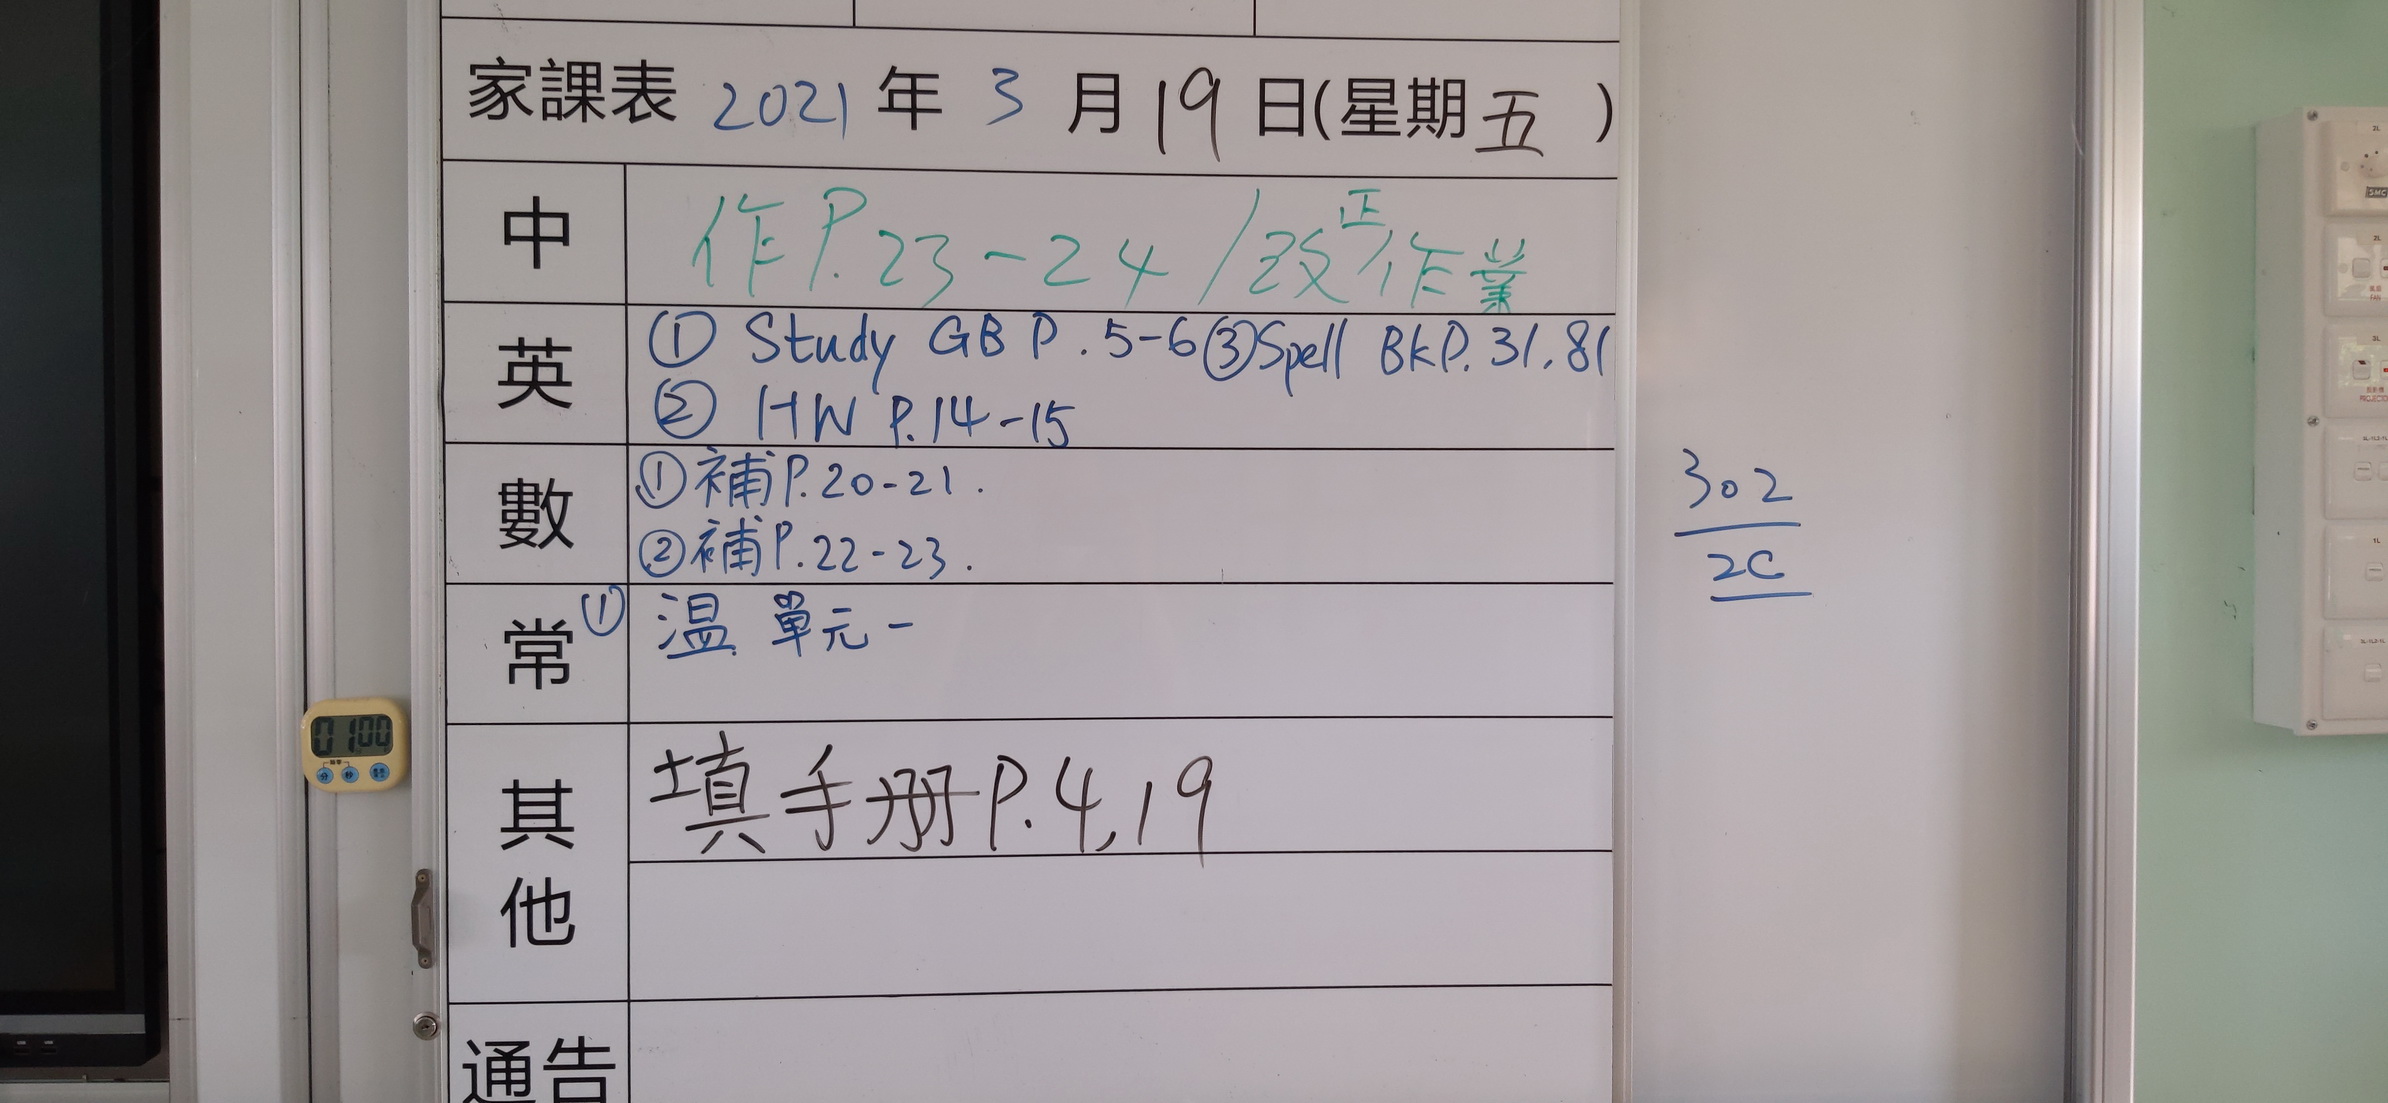 家課表 2021 年 3 月 19 日(星期五)
中 作P.23-24/改正作業
英 ① Study GB P.5-6 ③Spell BKP.31,81
② HW P.14-15
數 ①補P.20-21.
②補P.22-23.
常 ① 温 單元一
其他 填手册P.4,19
通告
302
2C
01 00
分 秒